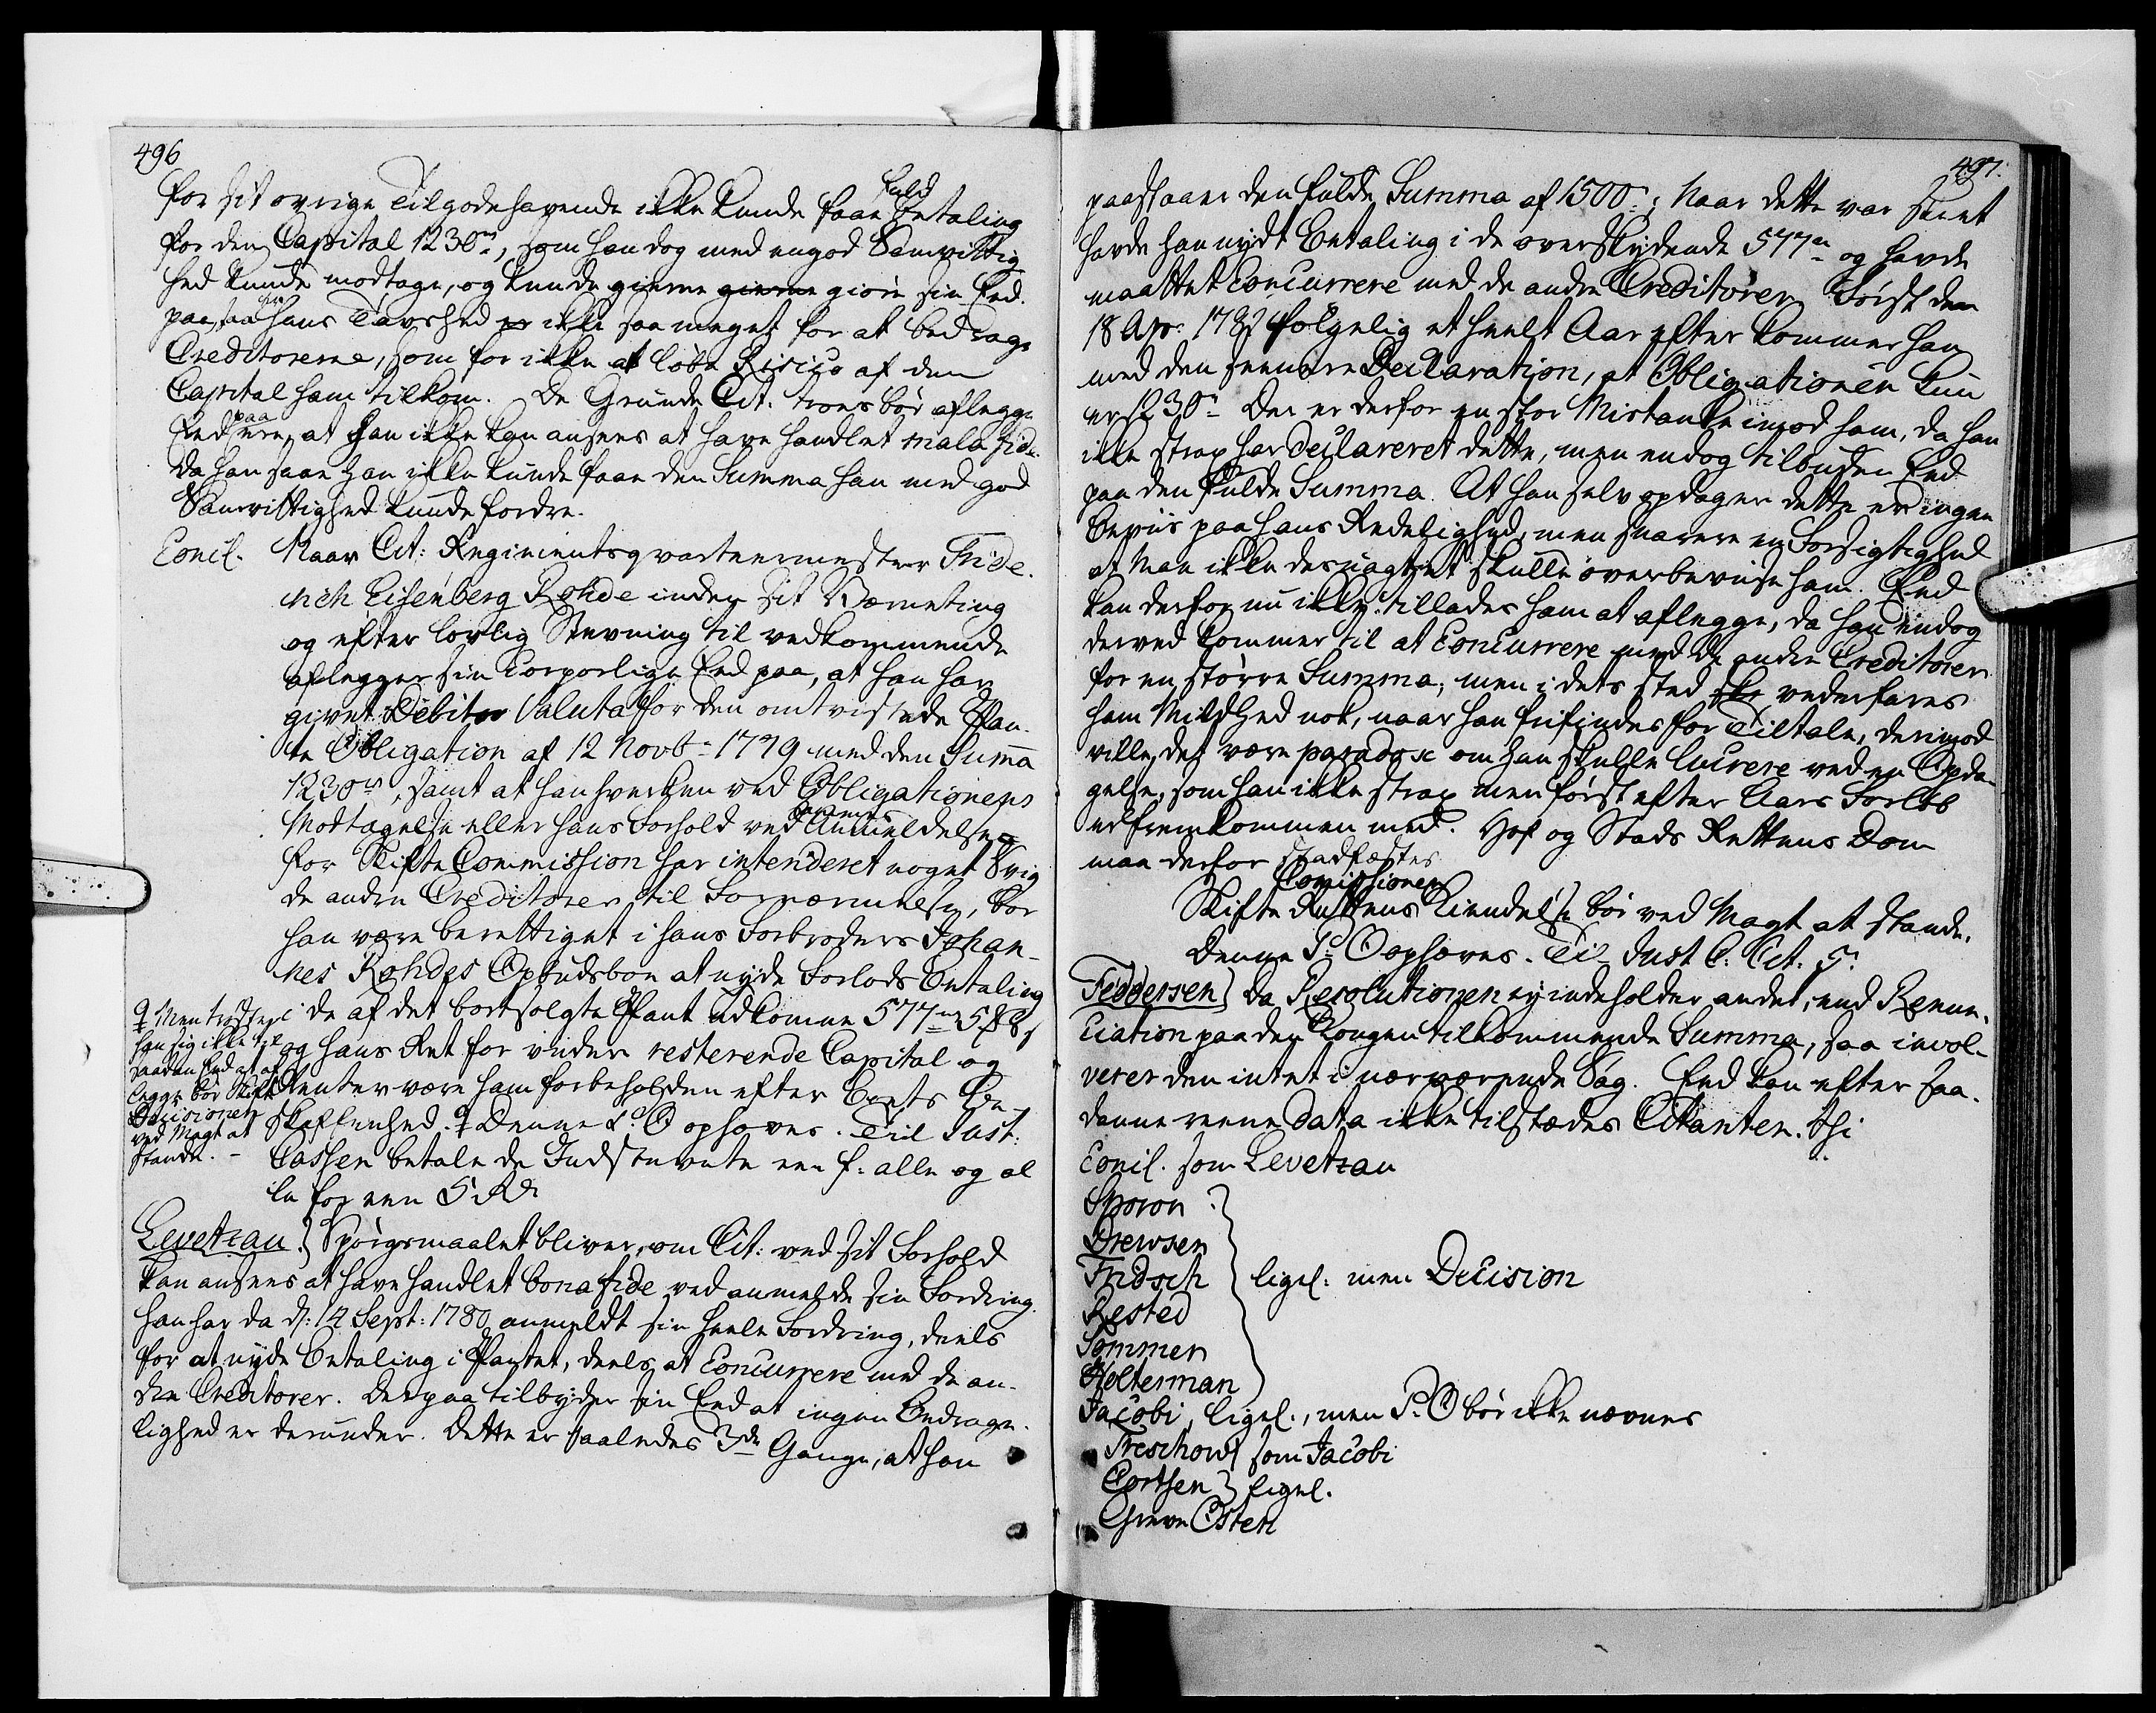 496
for sit øvrige Tilgodehavende ikke kunde faae fuld Betaling
for den Capital 1230 rd, som han dog med en god Samvittig
hed kunde modtage, og kunde gierne gierne giøre sin Eed
paa, saa hans Tavshed er ikke saa meget for at bedrage
Creditorerne, som for ikke at løbe Risico af den
Capital ham tilkom. De Grunde Cit. troer bør aflegge
Eed paa ere, at han ikke kan ansees at have handlet mala fide
da han saae han ikke kunde faae den Summa han med god
Samvittighed kunde fordre.
Concl. Naar Cit: Regimentsqvarteermester Fride-
rich Eisenberg Rohde inden sit Værneting
og efter lovlig Stevning til vedkommende
aflegger sin Corporlige Eed paa, at han har
givet Debitor Valuta for den omtvistede Pan-
te Obligation af 12 Novbr 1779 med den Summa
1230 rd, samt at han hverken ved Obligationens
Modtagelse eller hans Forhold ved Anmeldelsen
for Skifte Commission har intenderet noget Svig
de andre Creditorer til Fornærmelse, bør
han være berettiget i hans Forbroders Johan-
nes Rohdes Opbudsboe at nyde Forlods Betaling
i de af det bortsolgte Pant udkomne 577 rd 58 s
og hans Ret for videre resterende Capital og
Renter være ham forbeholden efter Boets Be-
skaffenhed. Denne S. O ophæves. Til Just:
Cassen betale de Indstevnte een f: alle og al
le for een 5 Rd
Men trøster
han sig ikke til
saadan Eed at af
legge bør Skifte
Decisionen
ved Magt at
stande.
Levetzau. Spørgsmaalet bliver, om Cit: ved sit Forhold
kan ansees at have handlet bona fide ved anmelde sin Fordring.
han har da d: 14 Sept: 1780 anmeldt sin heele Fordring, deels
for at nyde Betaling i Pantet, deels at Concurrere med de an-
dre Creditorer. Derpaa tilbyder sin Eed at ingen Bedrage-
lighed er derunder. Dette er saaledes 3de Gange, at han
497.
paastaaer den fulde Summa af 1500; Naar dette var skeet
havde han nydt Betaling i de overskydende 577 rd og havde
maattet Concurrere med de andre Creditorer. Først den
18 Apr: 1782 følgelig et heelt Aar efter kommer han
med den seenere Declaration, at Obligationen kun
er 1230 rd Der er derfor en stor Mistanke imod ham, da han
ikke strax har declareret dette, men endog tilbuden Eed
paa den fulde Summa. At han selv opdager dette er ingen
Beviis paa hans Redelighed, men snarere en Forsigtighed
at Man ikke desuagtet skulle overbeviise ham. Eed
kan derfor nu ikke tillades ham at aflegge, da han endog
derved kommer til at Concurrere med de andre Creditorer
for en større Summa; men i dets sted skr vederfares
ham Mildhed nok, naar han frifindes for Tiltale, derimod
ville det være paradox om han skulle lucrere ved en Opda-
gelse, som han ikke strax men først efter Aars Forløb
er fremkommen med. Hof og Stads Rettens Dom
maae derfor stadfæstes
Skifte Rettens Commissionens Kiendelse bør ved Magt at stande.
Denne S. O ophæves. Til Just C. Cit: 5.
Feddersen) Da Resolutionen ey indeholder andet, end Renun-
ciation paa den Kongen tilkommende Summa, saa invol-
verer den intet i nærværende Sag. Eed kan efter saa-
danne reene data ikke tilstædes Citanten. thi
Concl. som Levetzau
Sporon
Drewsen
Fridsch
Rested
Sommer
Kolterman
ligel: men Decision
Jacobi, ligel., men S. O bør ikke nævnes
Treschow som Jacobi
Cortsen ligel.
Greve Osten